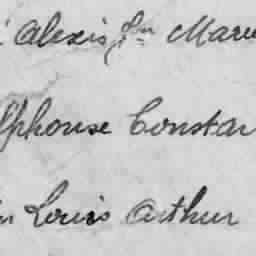 Alexis Jn Marie
lphonse Constan
Louis Arthur